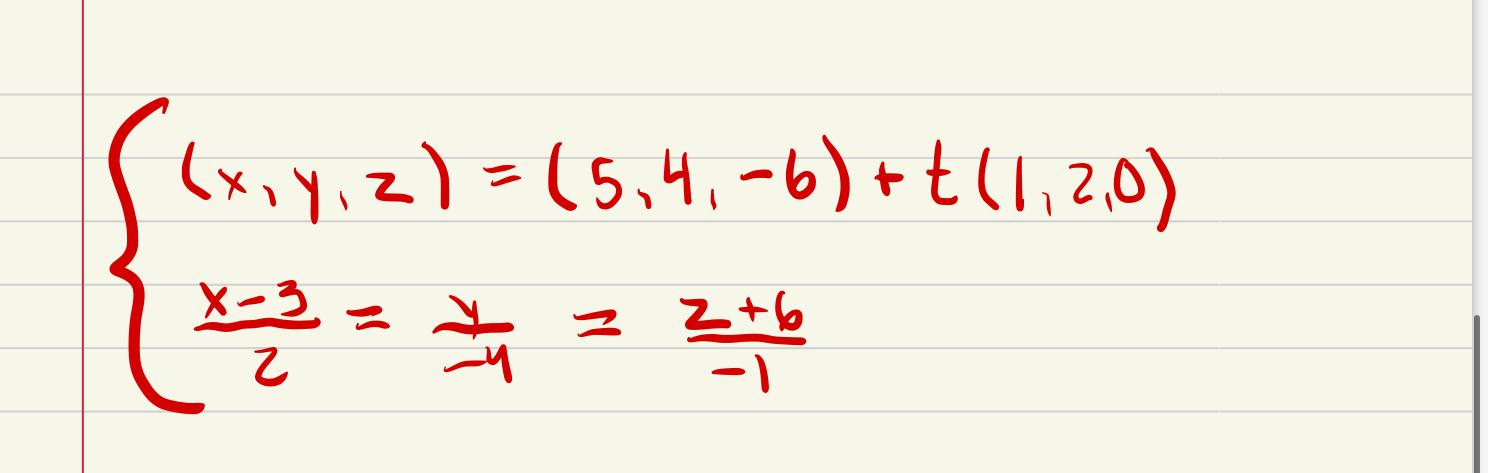 (x, y, z) = (5, 4, -6) + t(1, 2, 0)
\frac{x-3}{2} = \frac{y}{-4} = \frac{z+6}{-1}